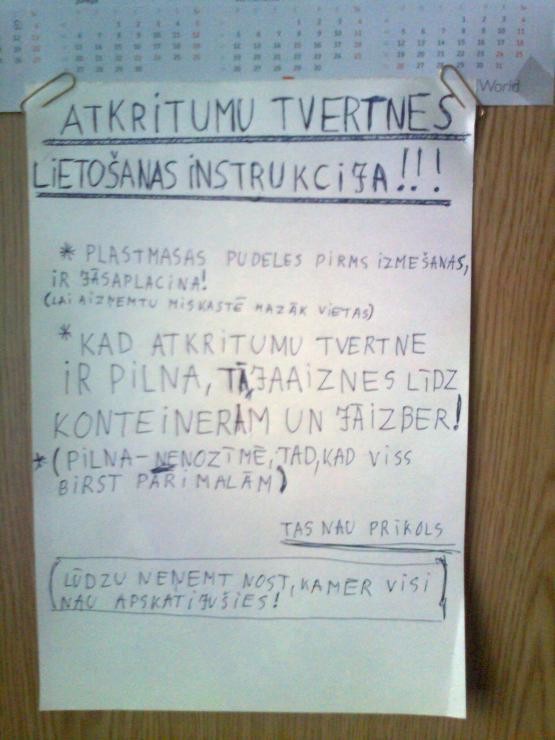 World
ATKRITUMU TVERTNES
LIETOŠANAS INSTRUKCIJA!!!
* PLASTMASAS PUDELES PIRMS IZMEŠANAS,
IR JĀSAPLACINA!
(LAI AIZŅEMTU MISKASTĒ MAZĀK VIETAS)
* KAD ATKRITUMU TVERTNE
IR PILNA, TĀ JAAIZNES LĪDZ
KONTEINERAM UN JĀIZBER!
* (PILNA-NENOZĪMĒ, TAD, KAD VISS
BIRST PĀRI MALĀM)
TAS NAU PRIKOLS
(LŪDZU NEŅEMT NOST, KAMĒR VISI
NAU APSKATIJUŠIES!)